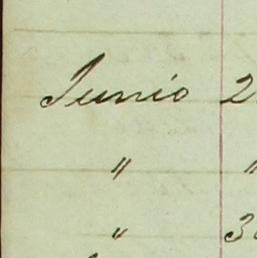 Junio 2
" "
" 3